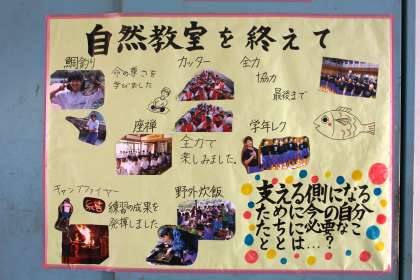 自然教室を終えて
鯛釣り
命の尊さを
学びました
カッター
全力
協力
最後まで
座禅
全力で
楽しみました。
学年レク
キャンプファイヤー
練習の成果を
発揮しました
野外炊飯
支える側になる
ために今の自分
たちに必要なこ
ととは…?